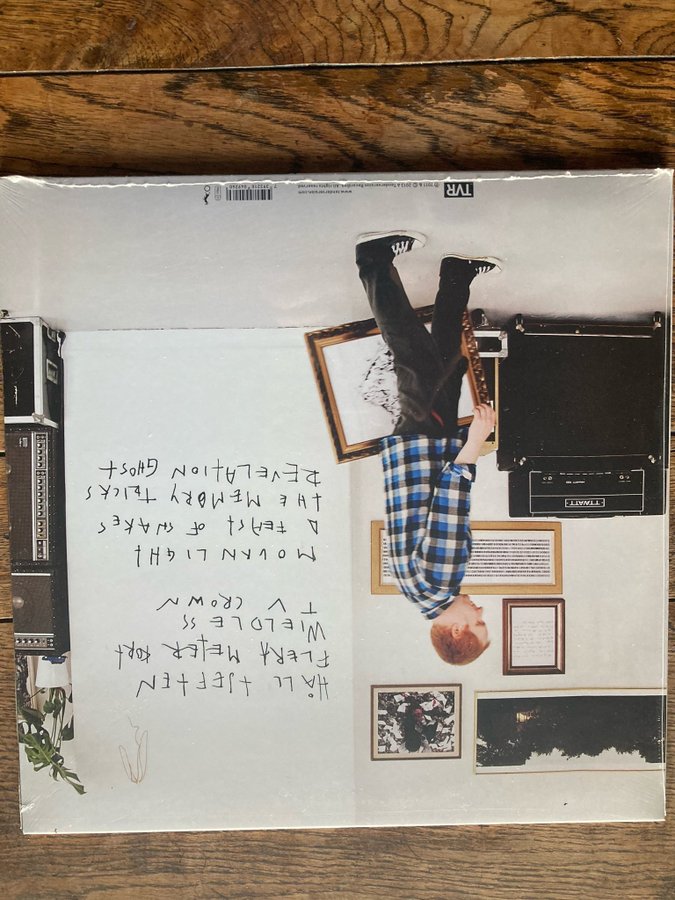 HÅLL TJEFTEN
FLERA METER BORT
WIELDLESS
TV CROWN
MOURNLIGHT
A FEAST OF SNAKES
THE MEMORY TRICKS
REVELATION GHOST
HIWATT
TVR
℗ 2011 & © 2012 A Tenderversion Recording. All rights reserved.
www.tenderversion.com